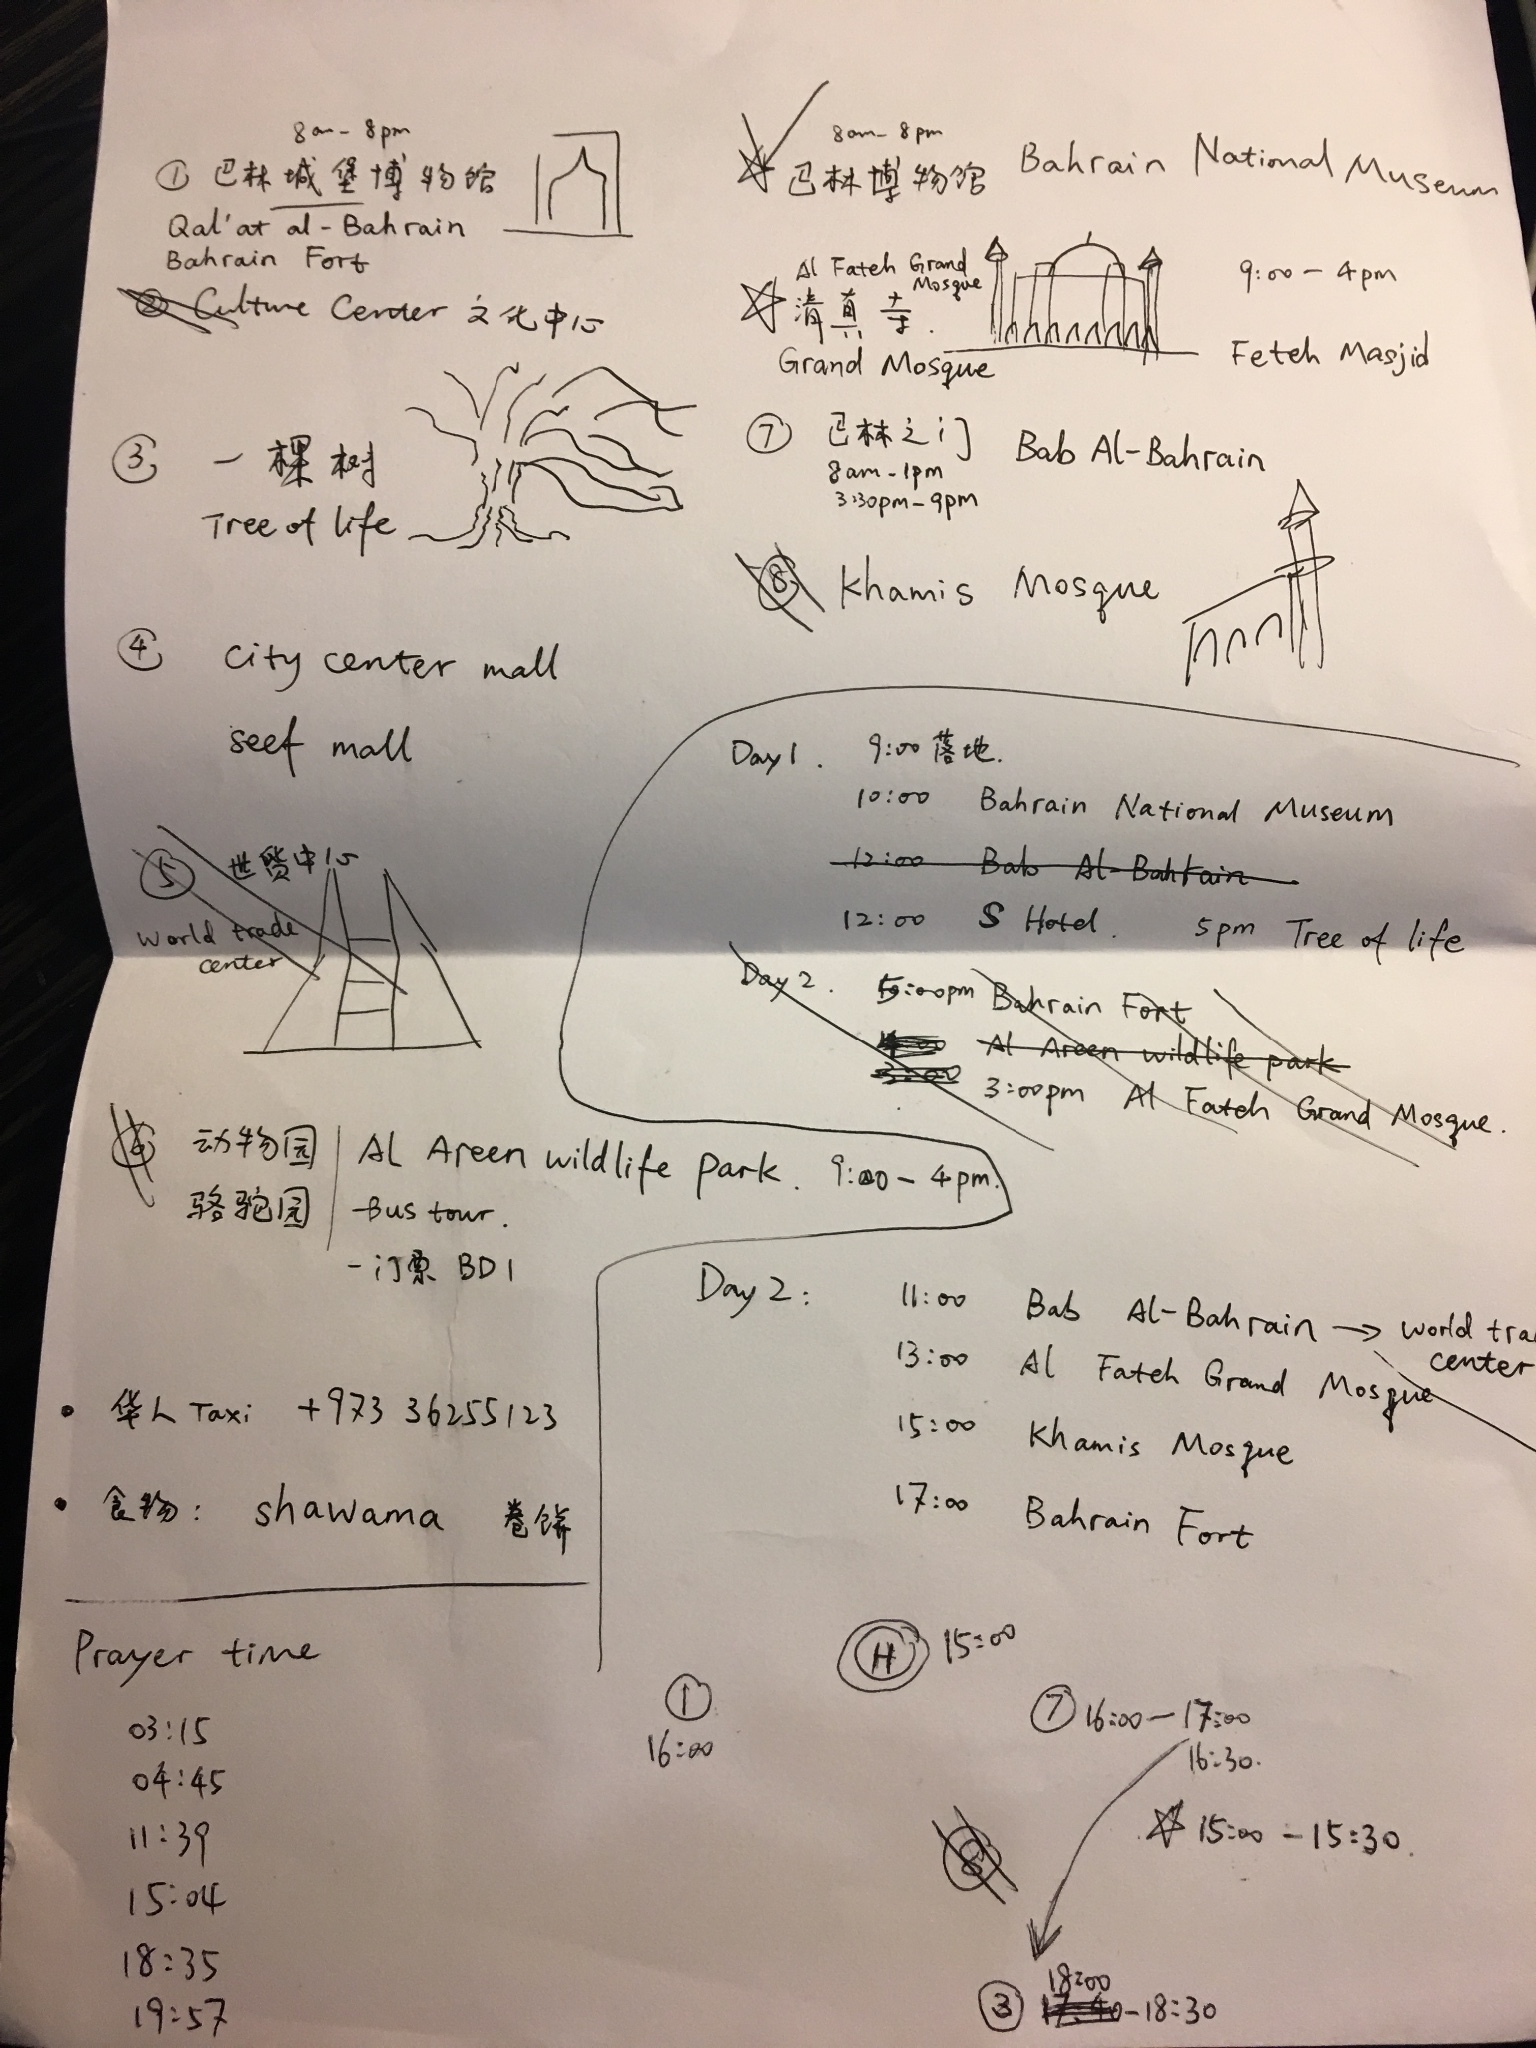 8am-8pm
① 巴林城堡博物馆
Qal'at al-Bahrain
Bahrain Fort
② Culture Center 文化中心
③ 一棵树
Tree of life
④ City center mall
seef mall
⑤ 世贸中心
world trade
center
⑥ 动物园 Al Areen wildlife park. 9:00-4pm.
骆驼园 -Bus tour.
-门票 BD1
• 华人 Taxi +973 36255123
• 食物: shawama 卷饼
Prayer time
03:15
04:45
11:39
15:04
18:35
19:57
8am-8pm
巴林博物馆 Bahrain National Museum
Al Fateh Grand
Mosque
清真寺.
Grand Mosque
9:00-4pm
Feteh Masjid
⑦ 巴林之门 Bab Al-Bahrain
8am-1pm
3:30pm-9pm
⑧ Khamis Mosque
Day1. 9:00 落地.
10:00 Bahrain National Museum
12:00 Bab Al-Bahrain
12:00 S Hotel. 5pm Tree of life
Day2. 5:00pm Bahrain Fort
Al Areen wildlife park
3:00
3:00pm Al Fateh Grand Mosque.
Day2: 11:00 Bab Al-Bahrain → world tra
center
13:00 Al Fateh Grand Mosque
15:00 Khamis Mosque
17:00 Bahrain Fort
H 15:00
① 16:00
⑦ 16:00-17:00
16:30.
15:00-15:30.
⑧
18:00
③ 17:40-18:30